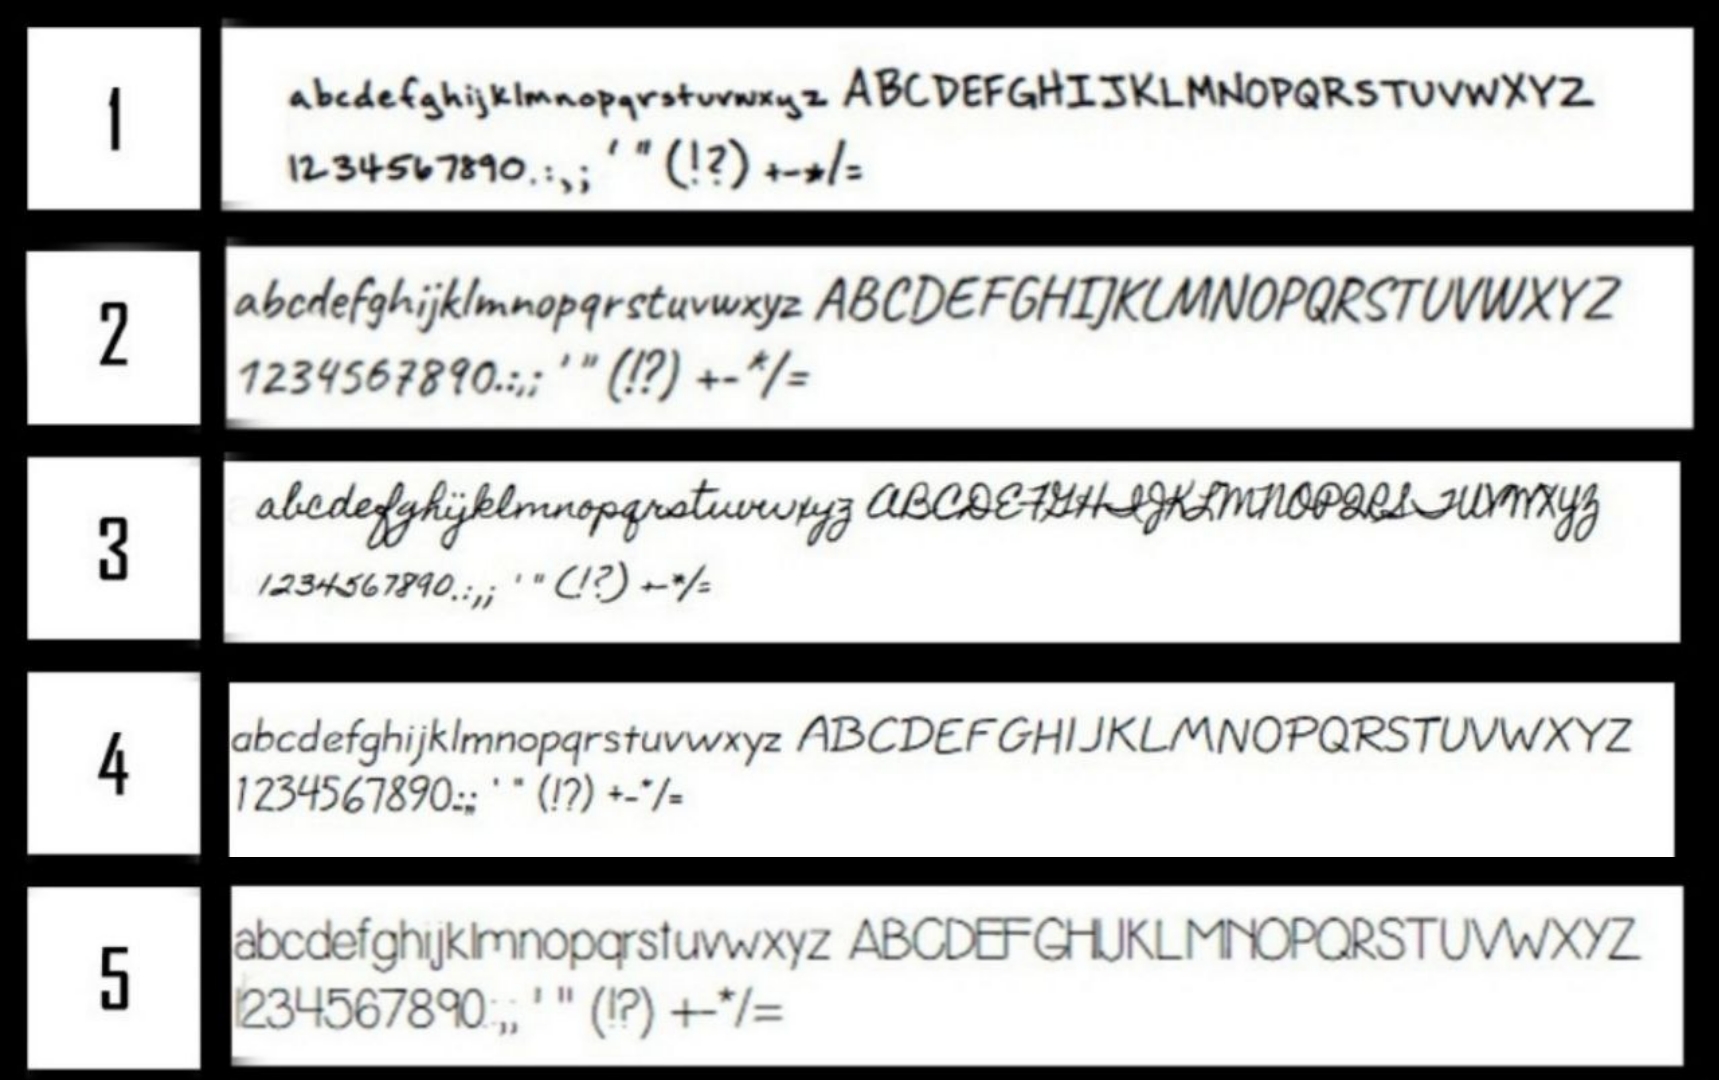 1
abcdefghijklmnopqrstuvwxyz ABCDEFGHIJKLMNOPQRSTUVWXYZ
1234567890.:,; ' " (!?) +-*/=
2
abcdefghijklmnopqrstuvwxyz ABCDEFGHIJKLMNOPQRSTUVWXYZ
1234567890.:,; ' " (!?) +-*/=
3
abcdefghijklmnopqrstuvwxyz ABCDEFGHIJKLMNOPQRSTUVWXYZ
1234567890.:,; ' " (!?) +-*/=
4
abcdefghijklmnopqrstuvwxyz ABCDEFGHIJKLMNOPQRSTUVWXYZ
1234567890.:,; ' " (!?) +-*/=
5
abcdefghijklmnopqrstuvwxyz ABCDEFGHIJKLMNOPQRSTUVWXYZ
1234567890.:,; ' " (!?) +-*/=